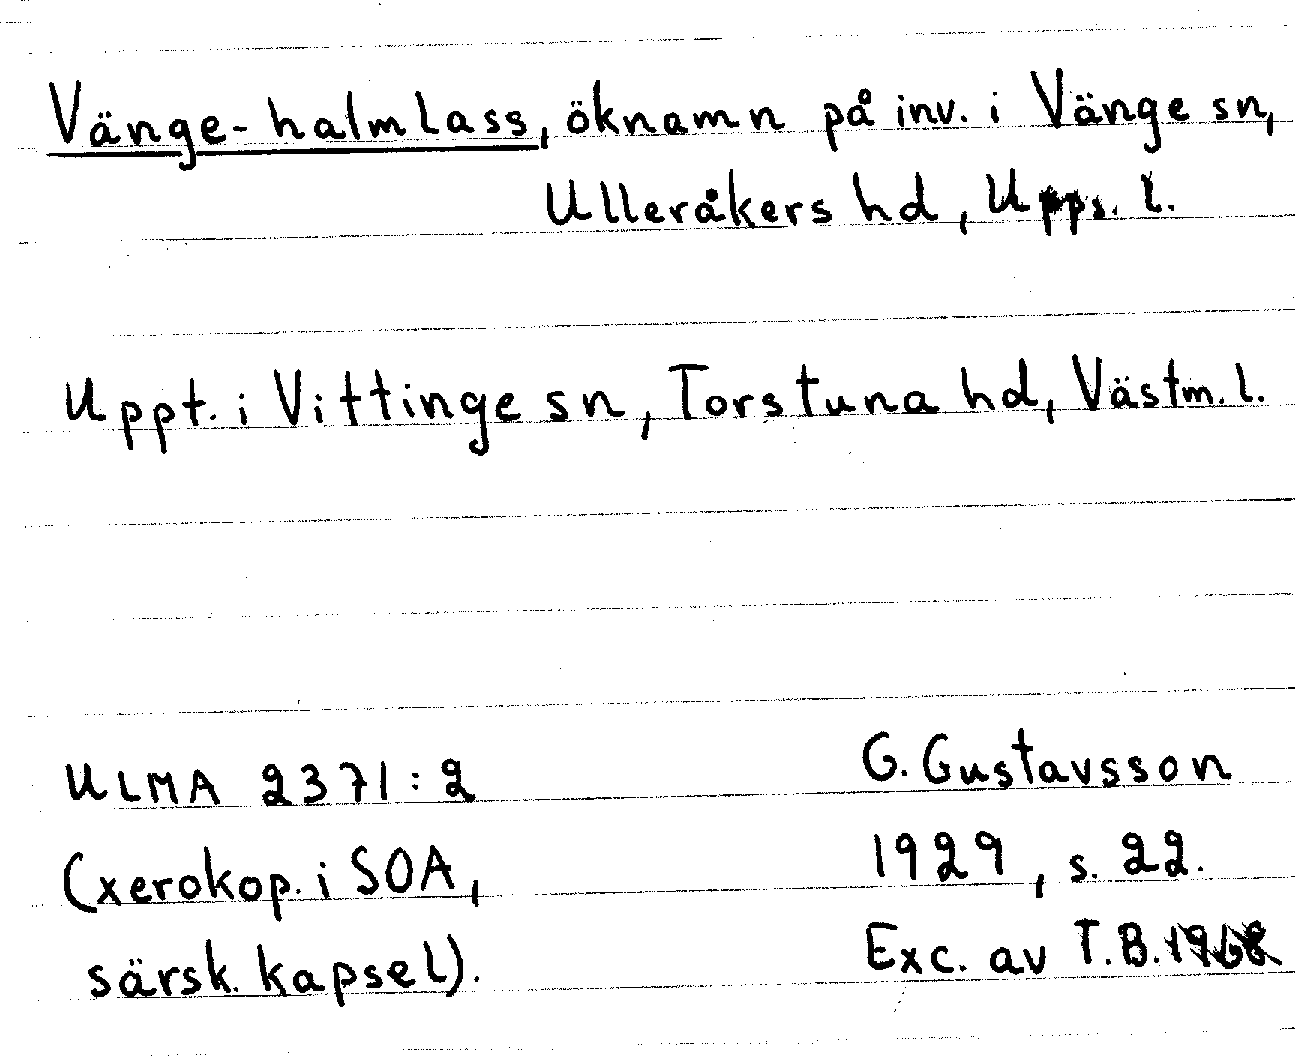 Vänge-halmlass, öknamn på inv. i Vänge sn,
Ulleråkers hd, Upps. l.
Uppt. i Vittinge sn, Torstuna hd, Västm. l.
ULMA 2371:2
(xerokop. i SOA,
särsk. kapsel).
G. Gustavsson
1929, s. 22.
Exc. av T.B. 1968